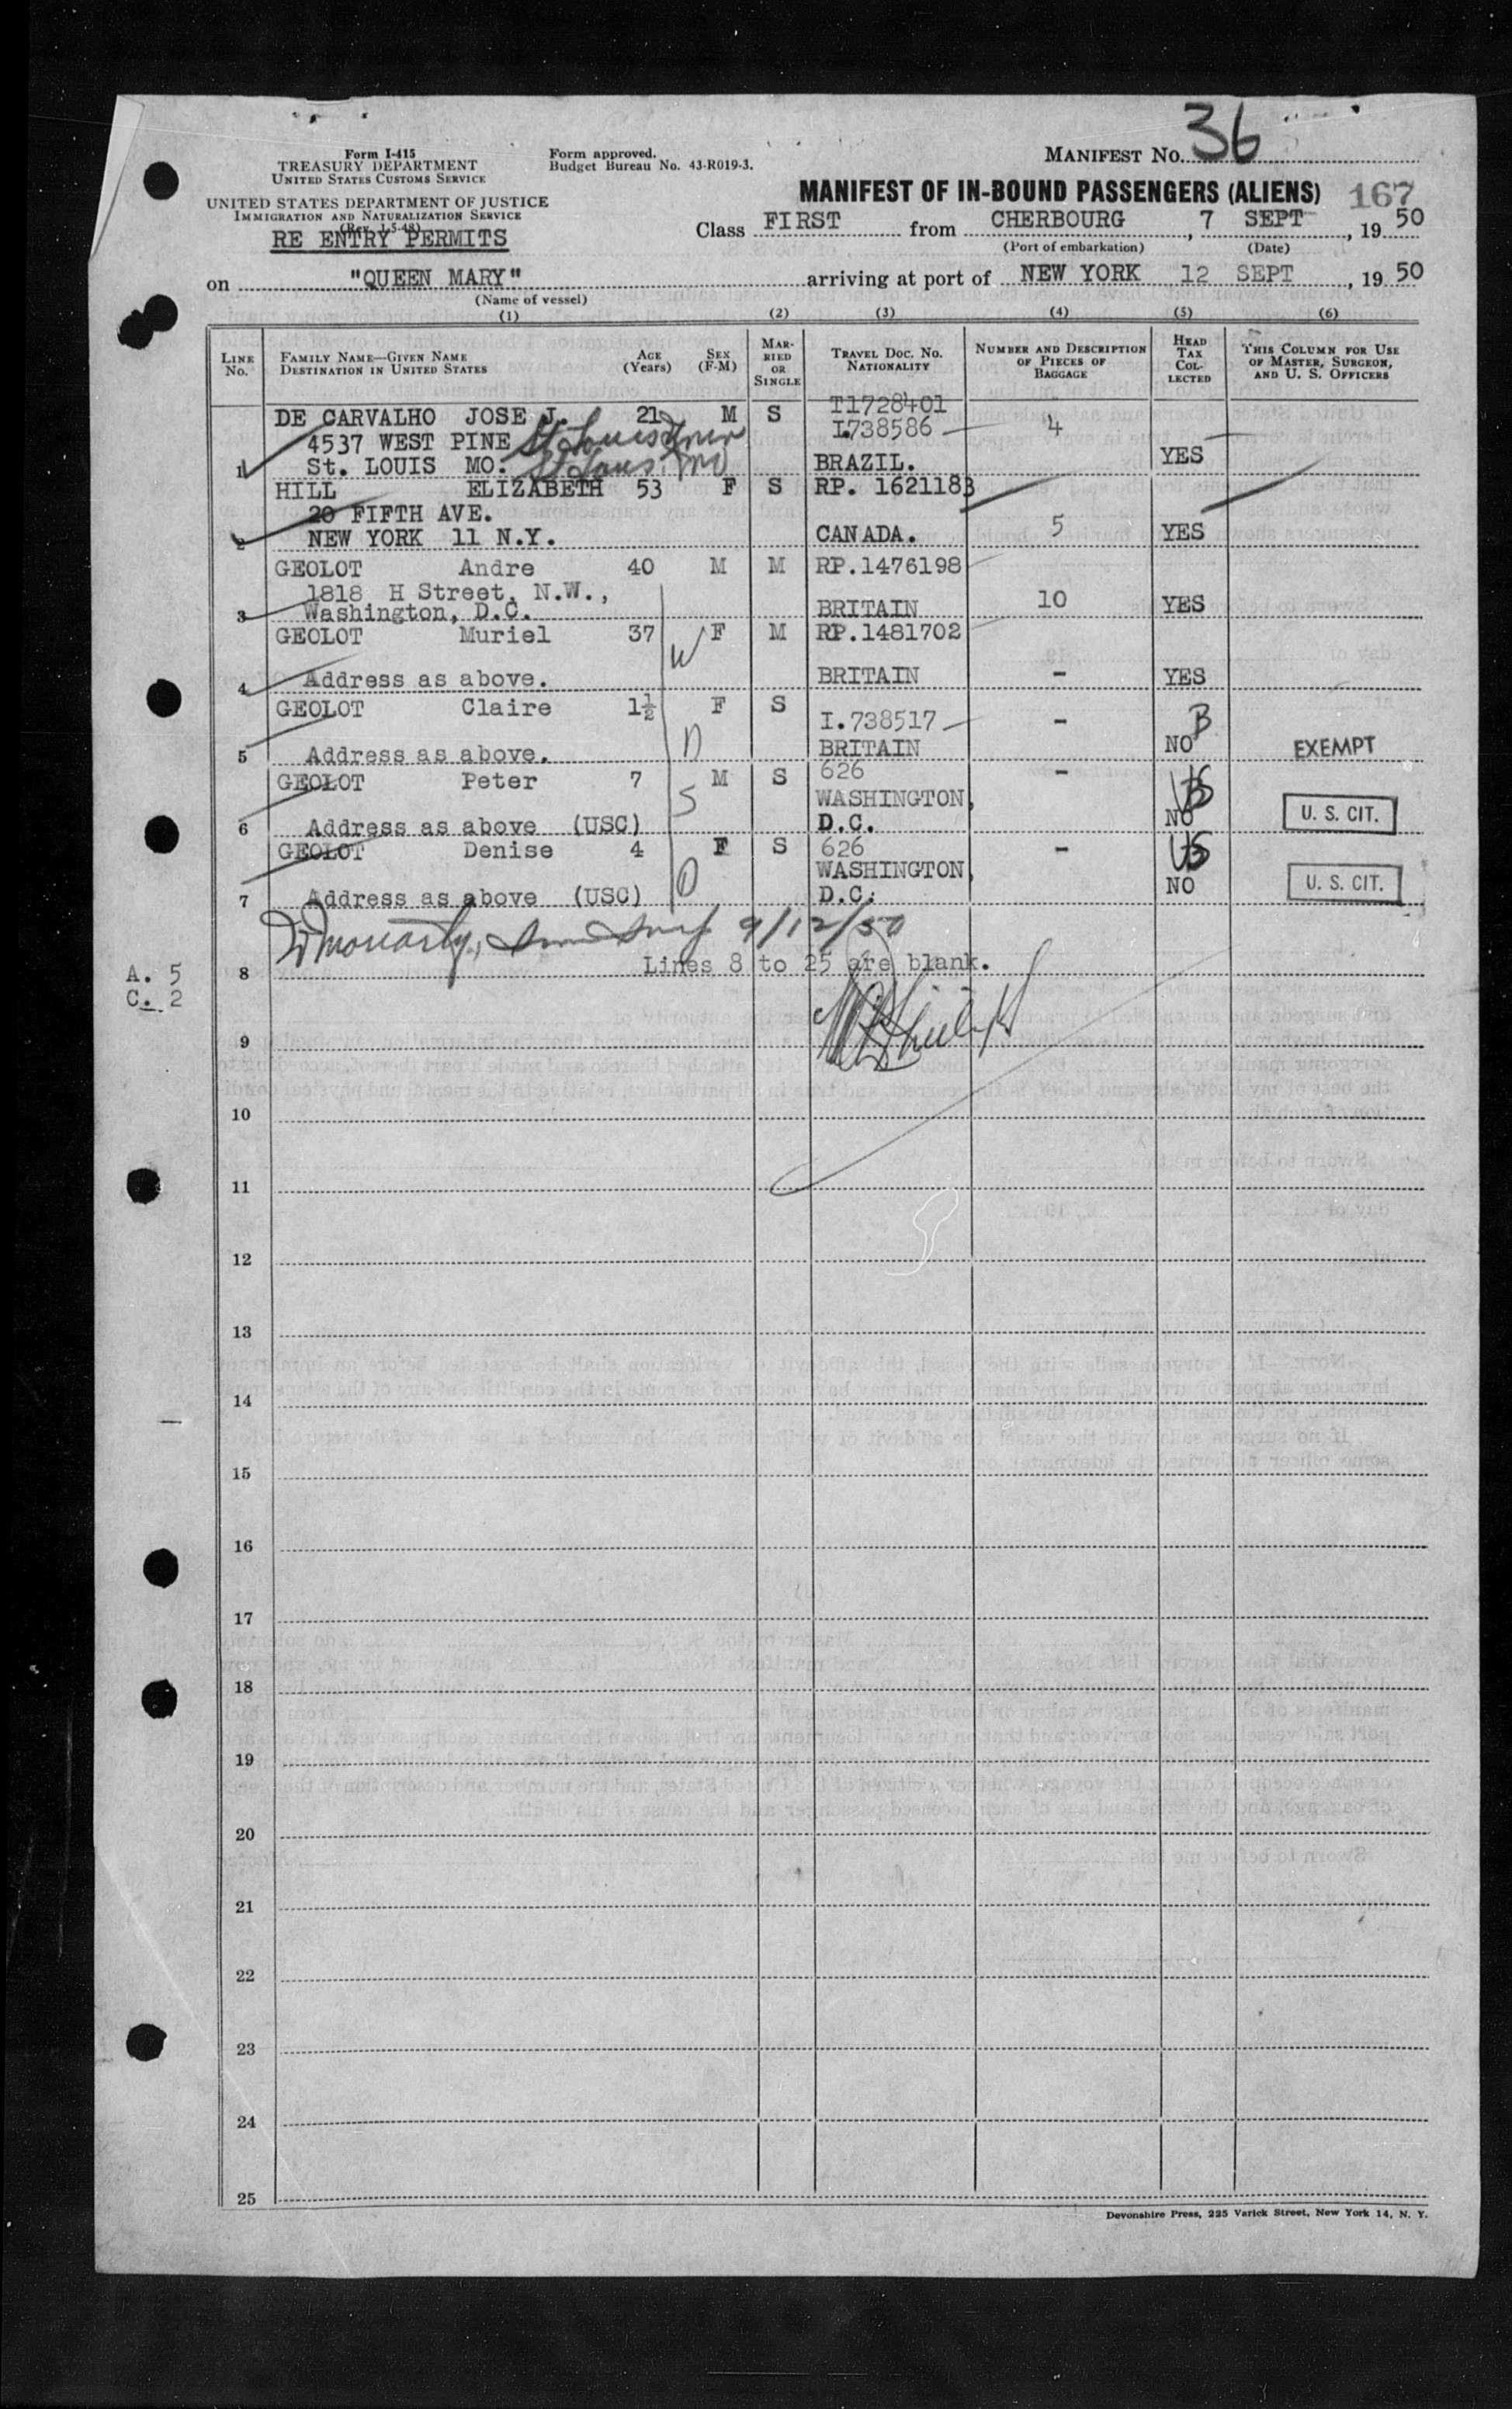 36
Form I-415
TREASURY DEPARTMENT
UNITED STATES CUSTOMS SERVICE
Form approved.
Budget Bureau No. 43-R019-3.
MANIFEST No.
UNITED STATES DEPARTMENT OF JUSTICE
IMMIGRATION AND NATURALIZATION SERVICE
(Rev. 1-5-48)
RE ENTRY PERMITS
MANIFEST OF IN-BOUND PASSENGERS (ALIENS) 167
Class FIRST from CHERBOURG, 7 SEPT, 19 50
(Port of embarkation) (Date)
on "QUEEN MARY" arriving at port of NEW YORK 12 SEPT, 19 50
(Name of vessel)
(1) (2) (3) (4) (5) (6)
LINE No. FAMILY NAME—GIVEN NAME DESTINATION IN UNITED STATES AGE (Years) SEX (F-M) MARRIED OR SINGLE TRAVEL DOC. NO. NATIONALITY NUMBER AND DESCRIPTION OF PIECES OF BAGGAGE HEAD TAX COLLECTED THIS COLUMN FOR USE OF MASTER, SURGEON, AND U. S. OFFICERS
DE CARVALHO JOSE J. 21 M S T1728401
4537 WEST PINE St Louis I.738586 4
1 St. LOUIS MO. St Louis Mo BRAZIL. YES
HILL ELIZABETH 53 F S RP. 1621183
20 FIFTH AVE.
2 NEW YORK 11 N.Y. CANADA. 5 YES
GEOLOT Andre 40 M M RP.1476198
1818 H Street, N.W.,
3 Washington, D.C. BRITAIN 10 YES
GEOLOT Muriel 37 F M RP.1481702
W
4 Address as above. BRITAIN - YES
GEOLOT Claire 1½ F S I.738517 - B
5 Address as above. D BRITAIN NO EXEMPT
GEOLOT Peter 7 M S 626 -
S WASHINGTON, US
6 Address as above (USC) D.C. NO U. S. CIT.
GEOLOT Denise 4 F S 626 - US
WASHINGTON,
7 Address as above (USC) O D.C. NO U. S. CIT.
9/12/50
A. 5
C. 2
8 Lines 8 to 25 are blank.
9
10
11
12
13
14
15
16
17
18
19
20
21
22
23
24
25
Devonshire Press, 225 Varick Street, New York 14, N. Y.